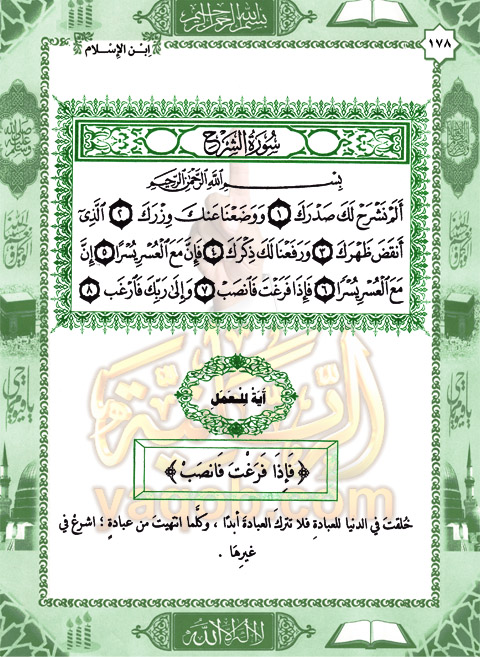 بسم الله الرحمن الرحيم
١٧٨
ابن الإسلام
سُورَةُ الشَّرْحِ
بِسْمِ اللَّهِ الرَّحْمَٰنِ الرَّحِيمِ
أَلَمْ نَشْرَحْ لَكَ صَدْرَكَ ١ وَوَضَعْنَا عَنكَ وِزْرَكَ ٢ الَّذِي
أَنقَضَ ظَهْرَكَ ٣ وَرَفَعْنَا لَكَ ذِكْرَكَ ٤ فَإِنَّ مَعَ الْعُسْرِ يُسْرًا ٥ إِنَّ
مَعَ الْعُسْرِ يُسْرًا ٦ فَإِذَا فَرَغْتَ فَانصَبْ ٧ وَإِلَىٰ رَبِّكَ فَارْغَب ٨
آيَةٌ لِلْعَمَلِ
﴿ فَإِذَا فَرَغْتَ فَانصَبْ ﴾
خُلقتَ في الدنيا للعبادةِ فلا تتركَ العبادةَ أبدًا ، وكلَّما انتهيتَ من عبادةٍ ؛ اشرعْ في
غيرِهَا .
yaqob.com
لا إله إلا الله